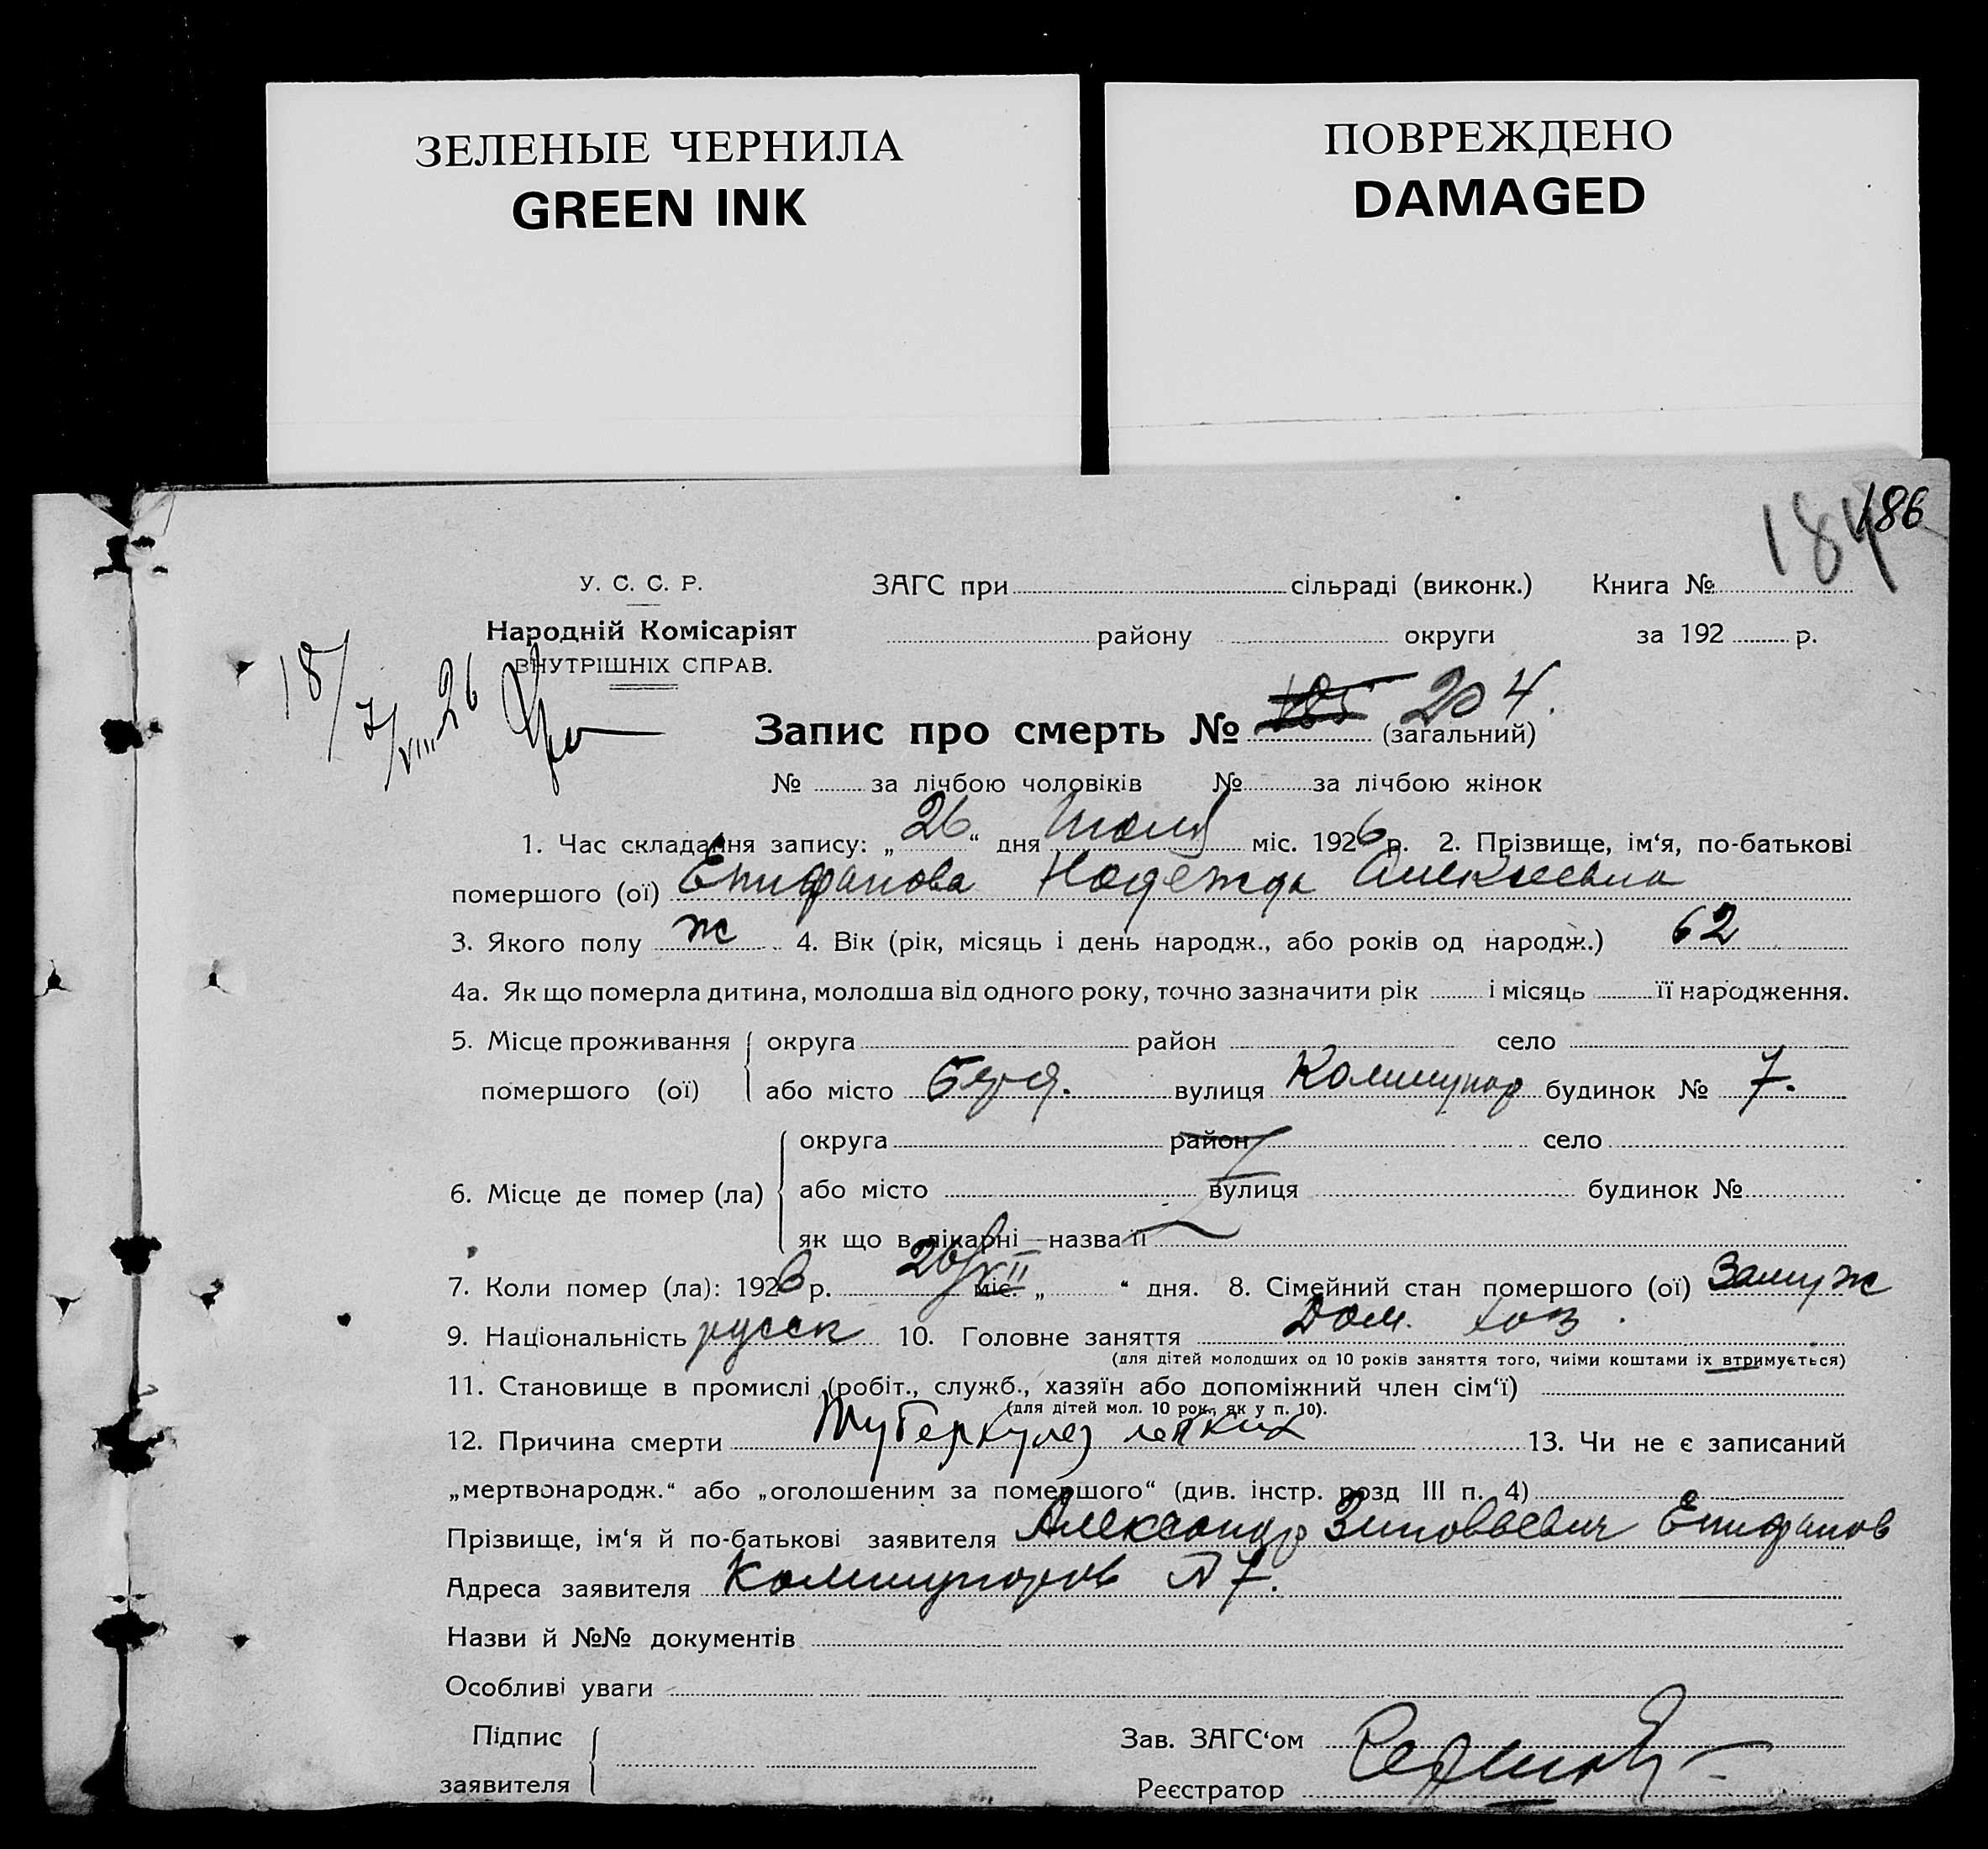 ЗЕЛЕНЫЕ ЧЕРНИЛА
GREEN INK
ПОВРЕЖДЕНО
DAMAGED
184 186
У. С. С. Р. ЗАГС при сільраді (виконк.) Книга №
Народній Комісаріят району округи за 192 р.
ВНУТРІШНІХ СПРАВ.
18/ 7/VIII-26
Запис про смерть № 185 204. (загальний)
№ за лічбою чоловіків № за лічбою жінок
1. Час складання запису: „26“ дня Июля міс. 1926 р. 2. Прізвище, ім‘я, по-батькові
помершого (ої) Епифанова Надежда Алексеевна
3. Якого полу ж 4. Вік (рік, місяць і день народж., або років од народж.) 62
4а. Як що померла дитина, молодша від одного року, точно зазначити рік і місяць її народження.
5. Місце проживання округа район село
помершого (ої) або місто вулиця Коммунар будинок № 7.
округа район село
6. Місце де помер (ла) або місто вулиця будинок №
як що в лікарні—назва її
7. Коли помер (ла): 1926 р. 26/VII міс. „ “ дня. 8. Сімейний стан помершого (ої) Замуж
9. Національність русск 10. Головне заняття Дом. хоз.
(для дітей молодших од 10 років заняття того, чиїми коштами їх втримується)
11. Становище в промислі (робіт., служб., хазяїн або допоміжний член сім‘ї)
(для дітей мол. 10 рок., як у п. 10).
12. Причина смерти Туберкулез легких 13. Чи не є записаний
„мертвонародж.“ або „оголошеним за помершого“ (див. інстр. розд III п. 4)
Прізвище, ім‘я й по-батькові заявителя Александр Зиновьевич Епифанов
Адреса заявителя Коммунаров № 7.
Назви й №№ документів
Особливі уваги
Підпис Зав. ЗАГС‘ом
заявителя Реєстратор